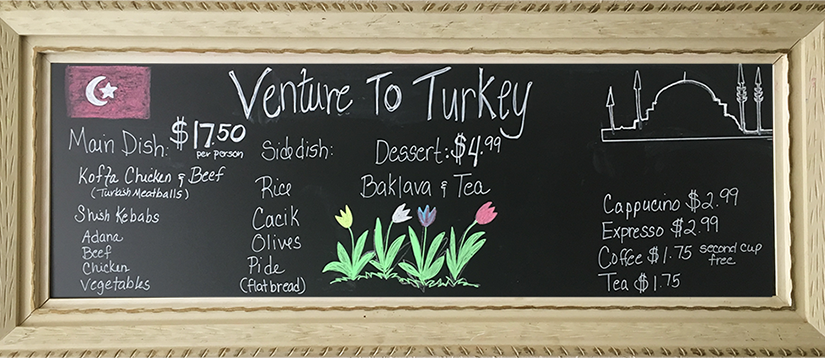 Venture To Turkey
Main Dish: $17.50
per person
Kofta Chicken & Beef
(Turkish Meatballs)
Shish Kebabs
Adana
Beef
Chicken
Vegetables
Side dish:
Rice
Cacik
Olives
Pide
(flatbread)
Dessert: $4.99
Baklava & Tea
Cappucino $2.99
Expresso $2.99
Coffee $1.75 second cup
free
Tea $1.75